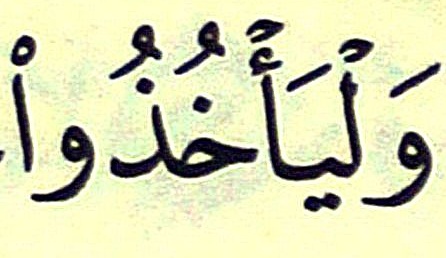 وَلۡيَأۡخُذُواْ